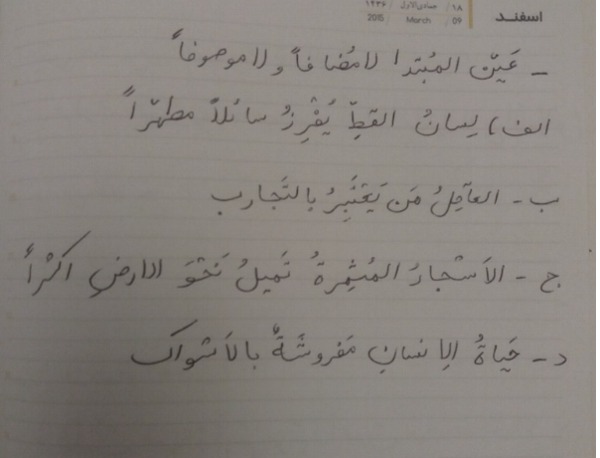 اسفند
١٨ جمادی الاول ١٤٣٦
2015 March 09
ـ عَیّن المُبتدا لامُضافاً و لاموصوفاً
الف) لِسانُ القطِّ یُفْرِزُ سائلاً مطهّراً
ب - العاقِلُ مَن یَعْتَبِرُ بِالتَجارب
ج - الاَشْجارُ المُثمِرةُ تَمیلُ نَحْوَ الارضِ اکثْراً
د - حَیاةُ الاِنسانِ مَفروشَةٌ بالاَشواک